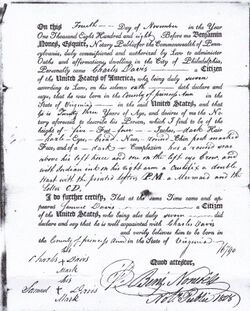 On this Fourth Day of November in the Year
One Thousand Eight Hundred and eight, Before me Benjamin
Nones, Esquire, Notary Public for the Commonwealth of Penn-
sylvania, duly commissioned and authorized by Law to administer
Oaths and affirmations, dwelling in the City of Philadelphia,
Personally came Charles Davis a Citizen
of the United States of America, who being duly sworn
according to Law, on his solemn oath doth declare and
say, that he was born in the County of princess Ann in the
State of Virginia in the said United States, and that
he is Twenty three Years of Age, and desires of me the
Notary aforesaid to describe his Person, which I find to be of the
height of five Feet four Inches, dark Hair
Eyes, Nose, round Chin, pock marked
Face, and of a dark Complexion has a round scar
above his left knee and one on the left eye brow, and
with Indian ink on his right arm a crucifix a double
Heart with the printed letters P.M. a Mermaid and the
Letter C D.
I do further certify, That at the same Time came and ap-
peared Samuel Davis a Citizen
of the United States, who being also duly sworn did
declare and say that he is well acquainted with Charles Davis
and verily believes him to be born in
the County of princess Ann in the State of Virginia
his
Charles X Davis
Mark
Quod attestor,
his
Samuel X Davis
Mark
Benj Nones
Not: Public 1808